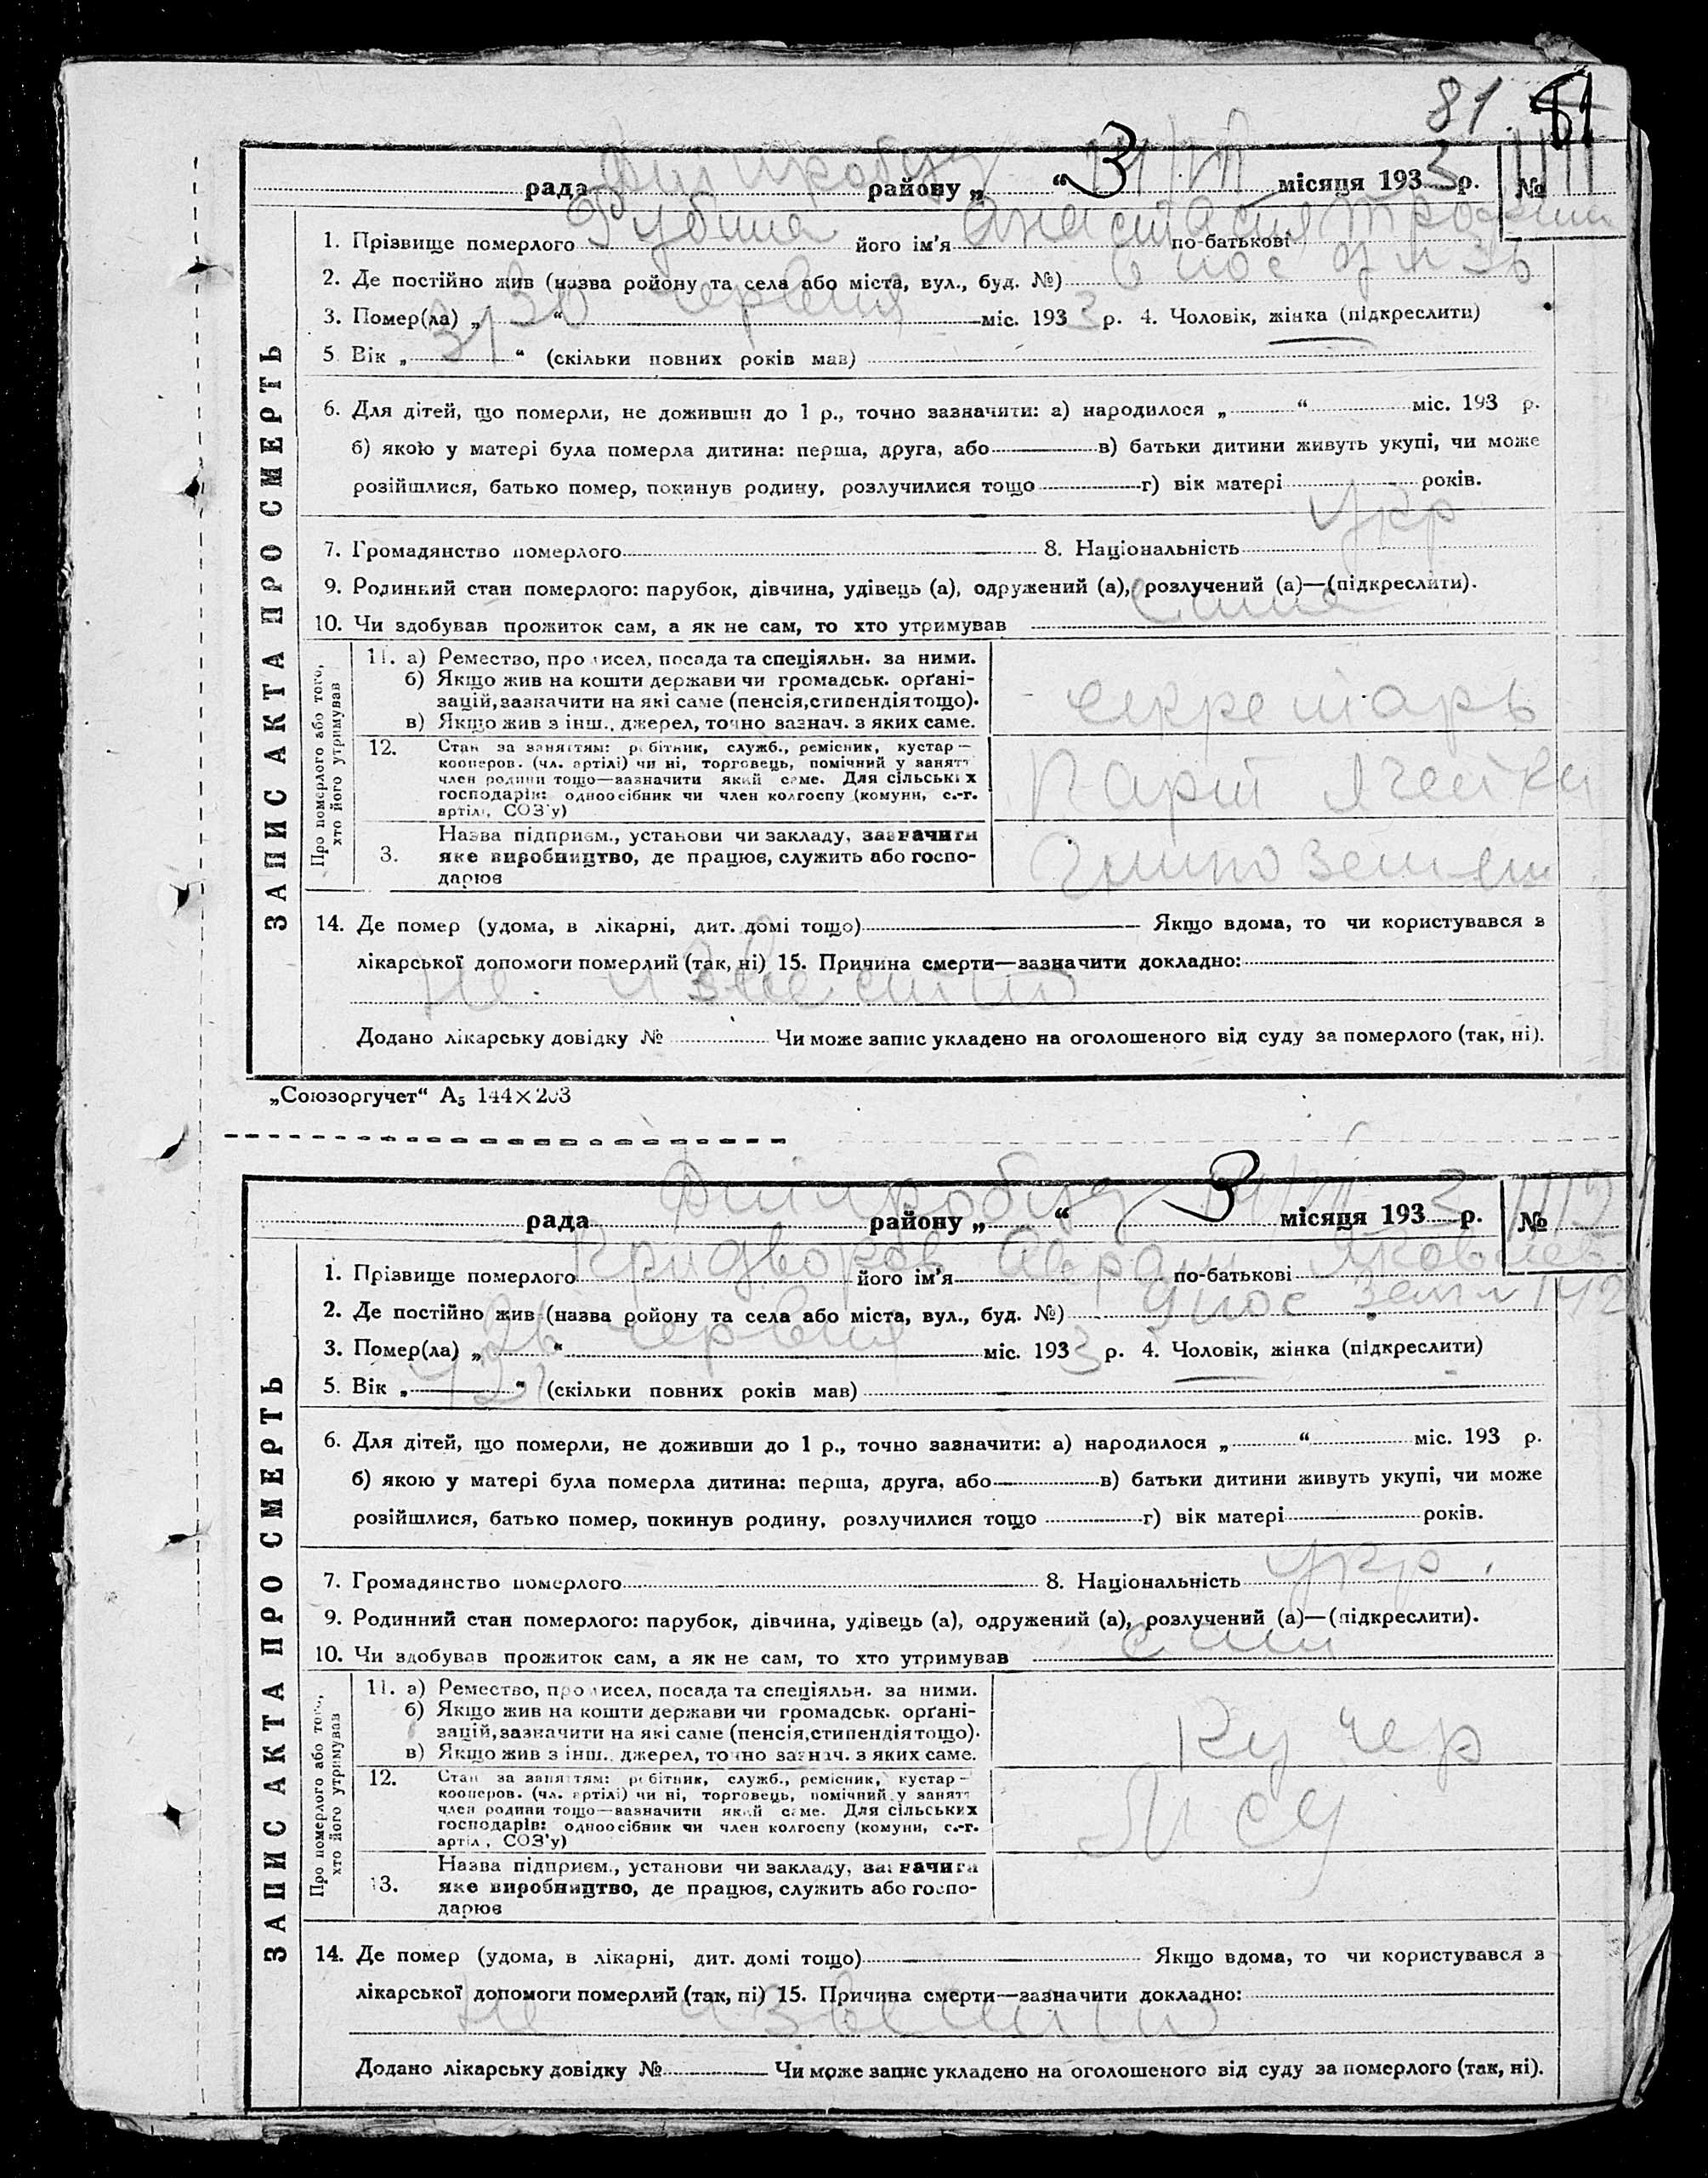 81 81
рада Дніпробуд району „ “ 3 місяця 1933 р. №
1. Прізвище померлого його ім’я Анастасия по-батькові
2. Де постійно жив (назва ройону та села або міста, вул., буд. №) 6 пос
3. Помер(ла) „30“ червня міс. 1933 р. 4. Чоловік, жінка (підкреслити)
5 Вік „31“ (скільки повних років мав)
6. Для дітей, що померли, не доживши до 1 р., точно зазначити: а) народилося „ “ міс. 193 р.
б) якою у матері була померла дитина: перша, друга, або в) батьки дитини живуть укупі, чи може
розійшлися, батько помер, покинув родину, розлучилися тощо г) вік матері років.
7. Громадянство померлого 8. Національність укр
9. Родинний стан померлого: парубок, дівчина, удівець (а), одружений (а), розлучений (а)—(підкреслити).
10. Чи здобував прожиток сам, а як не сам, то хто утримував сама
ЗАПИС АКТА ПРО СМЕРТЬ
Про померлого або того,
хто його утримував
11. а) Ремество, промисел, посада та спеціяльн. за ними.
б) Якщо жив на кошти держави чи громадськ. орґані-
зацій, зазначити на які саме (пенсія, стипендія тощо).
в) Якщо жив з інш., джерел, точно зазнач. з яких саме.
секретарь
12. Стан за заняттям: робітник, служб., ремісник, кустар—
кооперов. (чл. артілі) чи ні, торговець, помічний у занятт
член родини тощо—зазначити який саме. Для сільських
господарів: одноосібник чи член колгоспу (комуни, с.-г.
артілі, СОЗ’у)
Парт ячейки
3. Назва підприєм., установи чи закладу, зазначити
яке виробництво, де працює, служить або госпо-
дарює
14. Де помер (удома, в лікарні, дит. домі тощо) Якщо вдома, то чи користувався з
лікарської допомоги померлий (так, ні) 15. Причина смерти—зазначити докладно:
не известно
Додано лікарську довідку № Чи може запис укладено на оголошеного від суду за померлого (так, ні).
„Союзоргучет“ А₅ 144×203
рада Дніпробуд району „ “ 3 місяця 1933 р. № 1112
1. Прізвище померлого Кридворов його ім’я Аврам по-батькові Яковлев
2. Де постійно жив (назва ройону та села або міста, вул., буд. №) пос
3. Помер(ла) „26“ червня міс. 1933 р. 4. Чоловік, жінка (підкреслити)
5. Вік „42“ (скільки повних років мав)
6. Для дітей, що померли, не доживши до 1 р., точно зазначити: а) народилося „ “ міс. 193 р.
б) якою у матері була померла дитина: перша, друга, або в) батьки дитини живуть укупі, чи може
розійшлися, батько помер, покинув родину, розлучилися тощо г) вік матері років.
7. Громадянство померлого 8. Національність укр.
9. Родинний стан померлого: парубок, дівчина, удівець (а), одружений (а), розлучений (а)—(підкреслити).
10. Чи здобував прожиток сам, а як не сам, то хто утримував сам
ЗАПИС АКТА ПРО СМЕРТЬ
Про померлого або того,
хто його утримував
11. а) Ремество, промисел, посада та спеціяльн. за ними.
б) Якщо жив на кошти держави чи громадськ. орґані-
зацій, зазначити на які саме (пенсія, стипендія тощо).
в) Якщо жив з інш., джерел, точно зазнач. з яких саме.
Кучер
12. Стан за заняттям: робітник, служб., ремісник, кустар—
кооперов. (чл. артілі) чи ні, торговець, помічний у занятт
член родини тощо—зазначити який саме. Для сільських
господарів: одноосібник чи член колгоспу (комуни, с.-г.
артіл, СОЗ’у)
13. Назва підприєм., установи чи закладу, зазначити
яке виробництво, де працює, служить або госпо-
дарює
14. Де помер (удома, в лікарні, дит. домі тощо) Якщо вдома, то чи користувався з
лікарської допомоги померлий (так, ні) 15. Причина смерти—зазначити докладно:
не известно
Додано лікарську довідку № Чи може запис укладено на оголошеного від суду за померлого (так, ні).